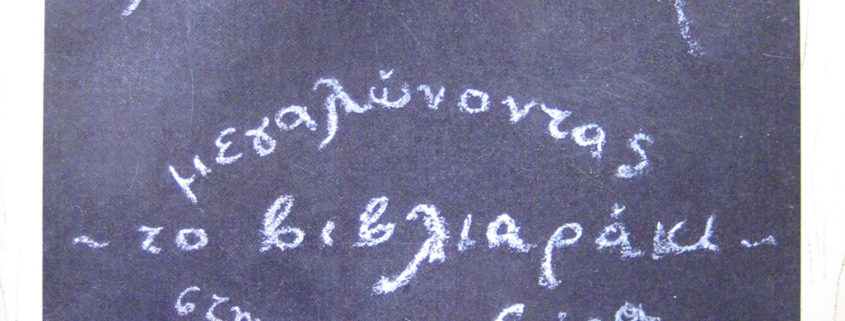 μεγαλώνοντας
~ το βιβλιαράκι ~
στη